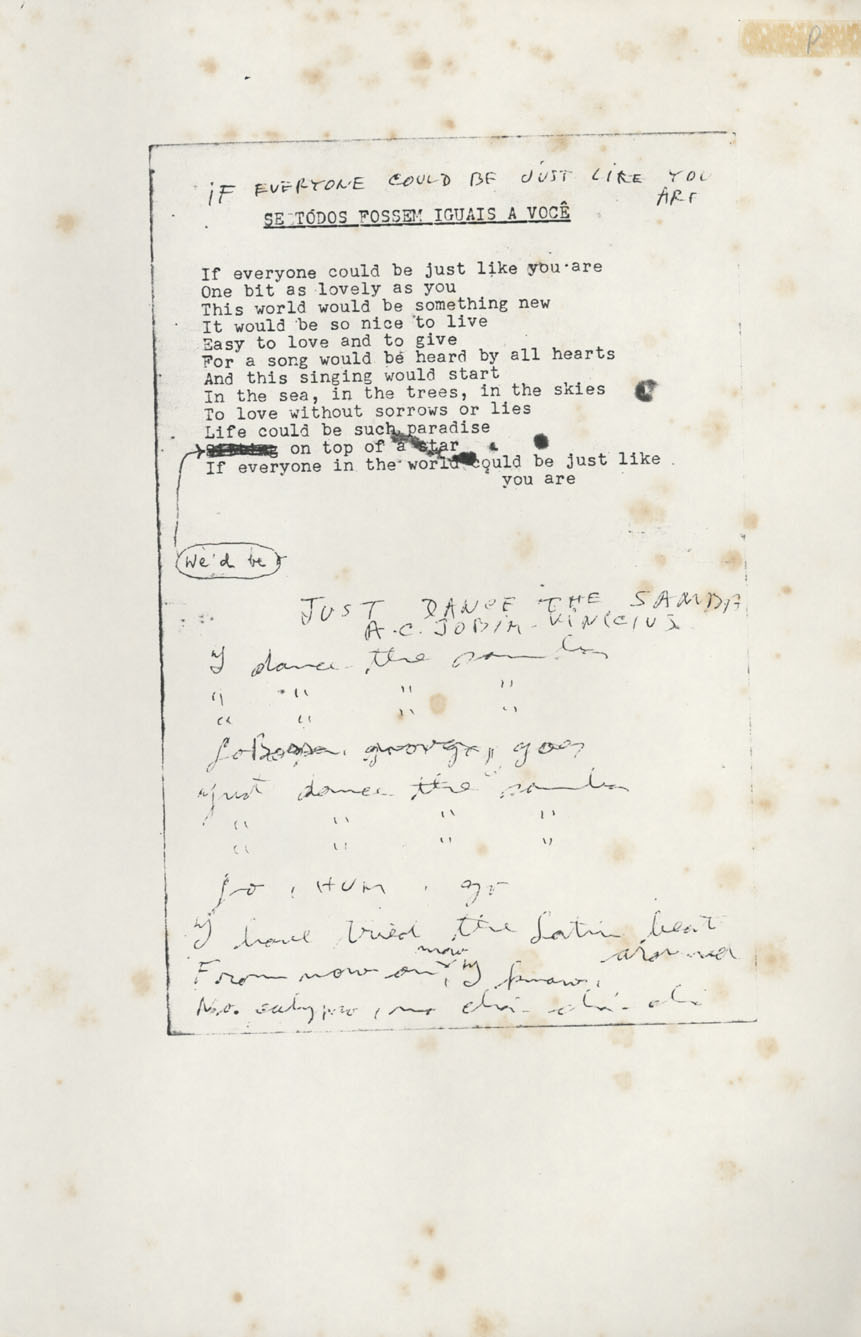 P
iF EVERYONE COULD BE JUST LIKE YOU
ARE
SE TÓDOS FOSSEM IGUAIS A VOCÊ
If everyone could be just like you are
One bit as lovely as you
This world would be something new
It would be so nice to live
Easy to love and to give
For a song would be heard by all hearts
And this singing would start
In the sea, in the trees, in the skies
To love without sorrows or lies
Life could be such paradise
on top of a star
If everyone in the world could be just like
you are
We'd be
JUST DANCE THE SAMBA
A.C. JOBIM - VINICIUS
I dance the samba
" " " "
" " " "
Go go
Just dance the samba
" " " "
" " " "
Go, HUM, go
I have tried the Latin beat
around
From now on, now I know,
No calypso, no chá-chá-chá